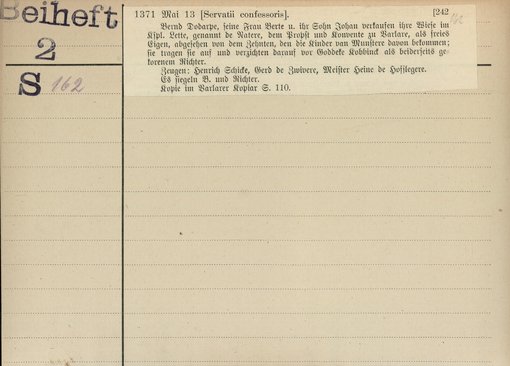 Beiheft
2
S 162
1371 Mai 13 [Servatii confessoris]. [242
Bernd Dodarpe, seine Frau Berte u. ihr Sohn Johan verkaufen ihre Wiese im
Kspl. Lette, genannt de Natere, dem Propst und Konvente zu Varlare, als freies
Eigen, abgesehen von dem Zehnten, den die Kinder van Munstere davon bekommen;
sie tragen sie auf und verzichten darauf vor Goddeke Kobbinck als beiderseits ge-
korenem Richter.
Zeugen: Henrich Schicke, Gerd de Zwivere, Meister Heine de Hofslegere.
Es siegeln B. und Richter.
Kopie im Varlarer Kopiar S. 110.